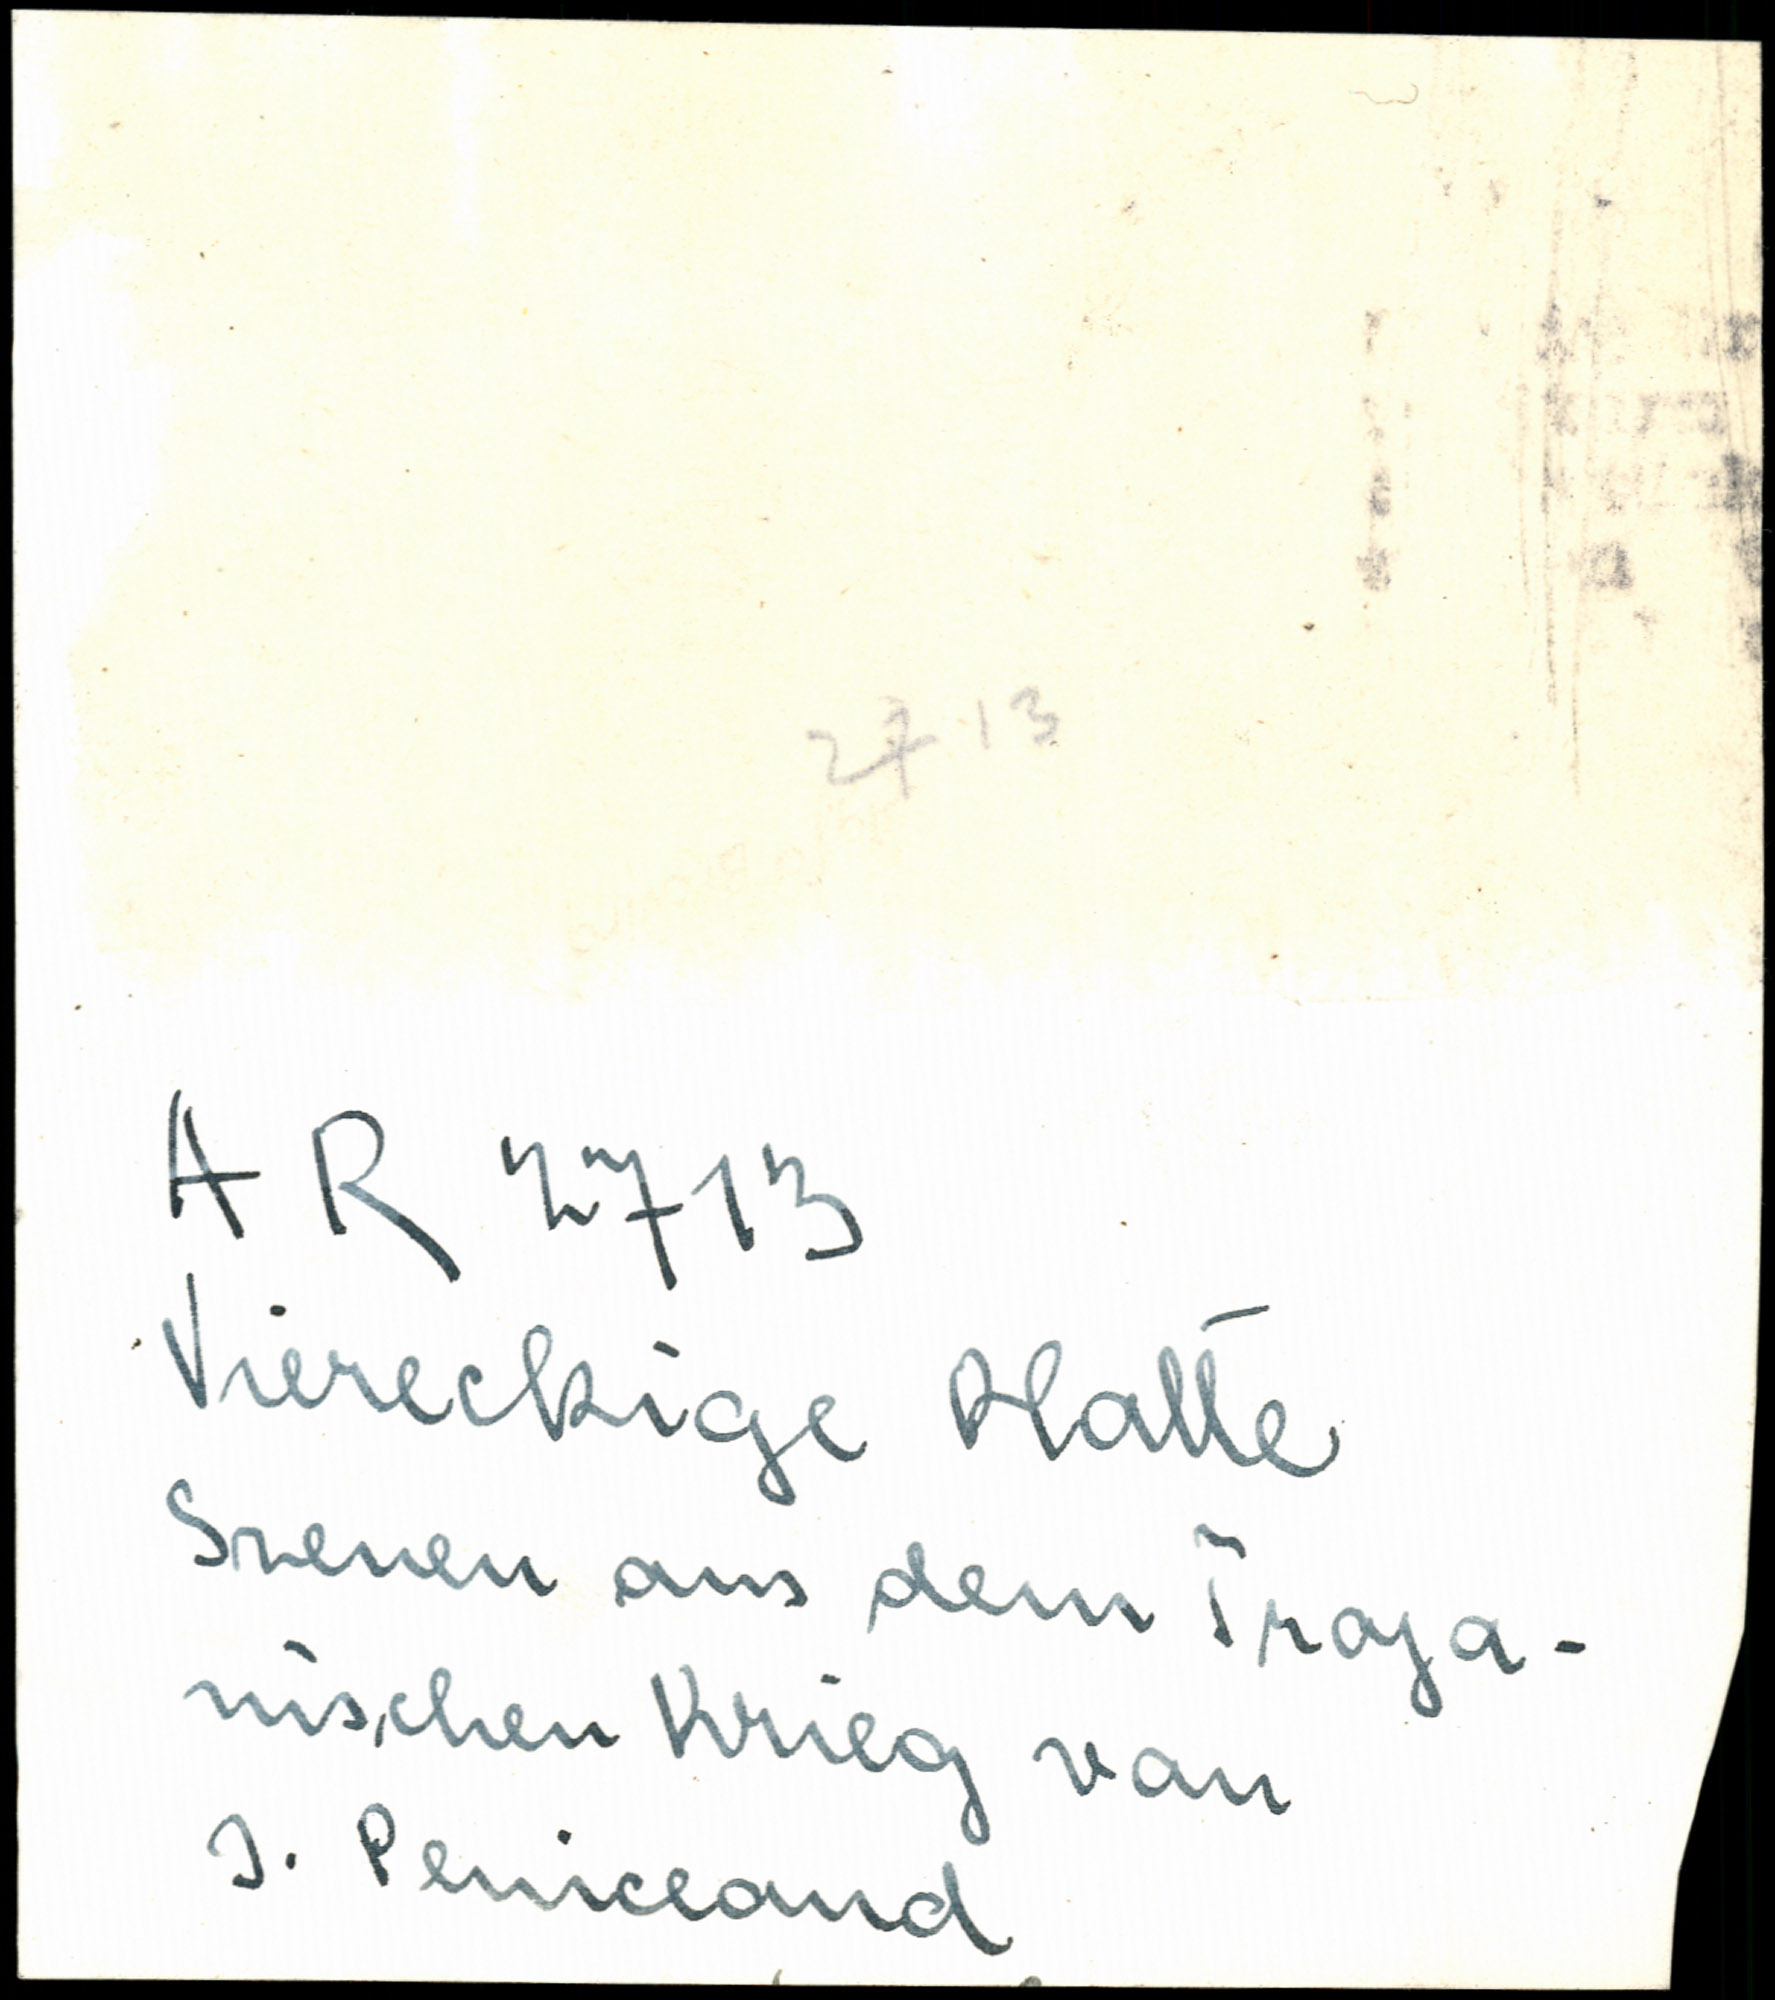 2713
A R 2713
Viereckige Platte
Szenen aus dem Troja-
nischen Krieg von
J. Peniceaud